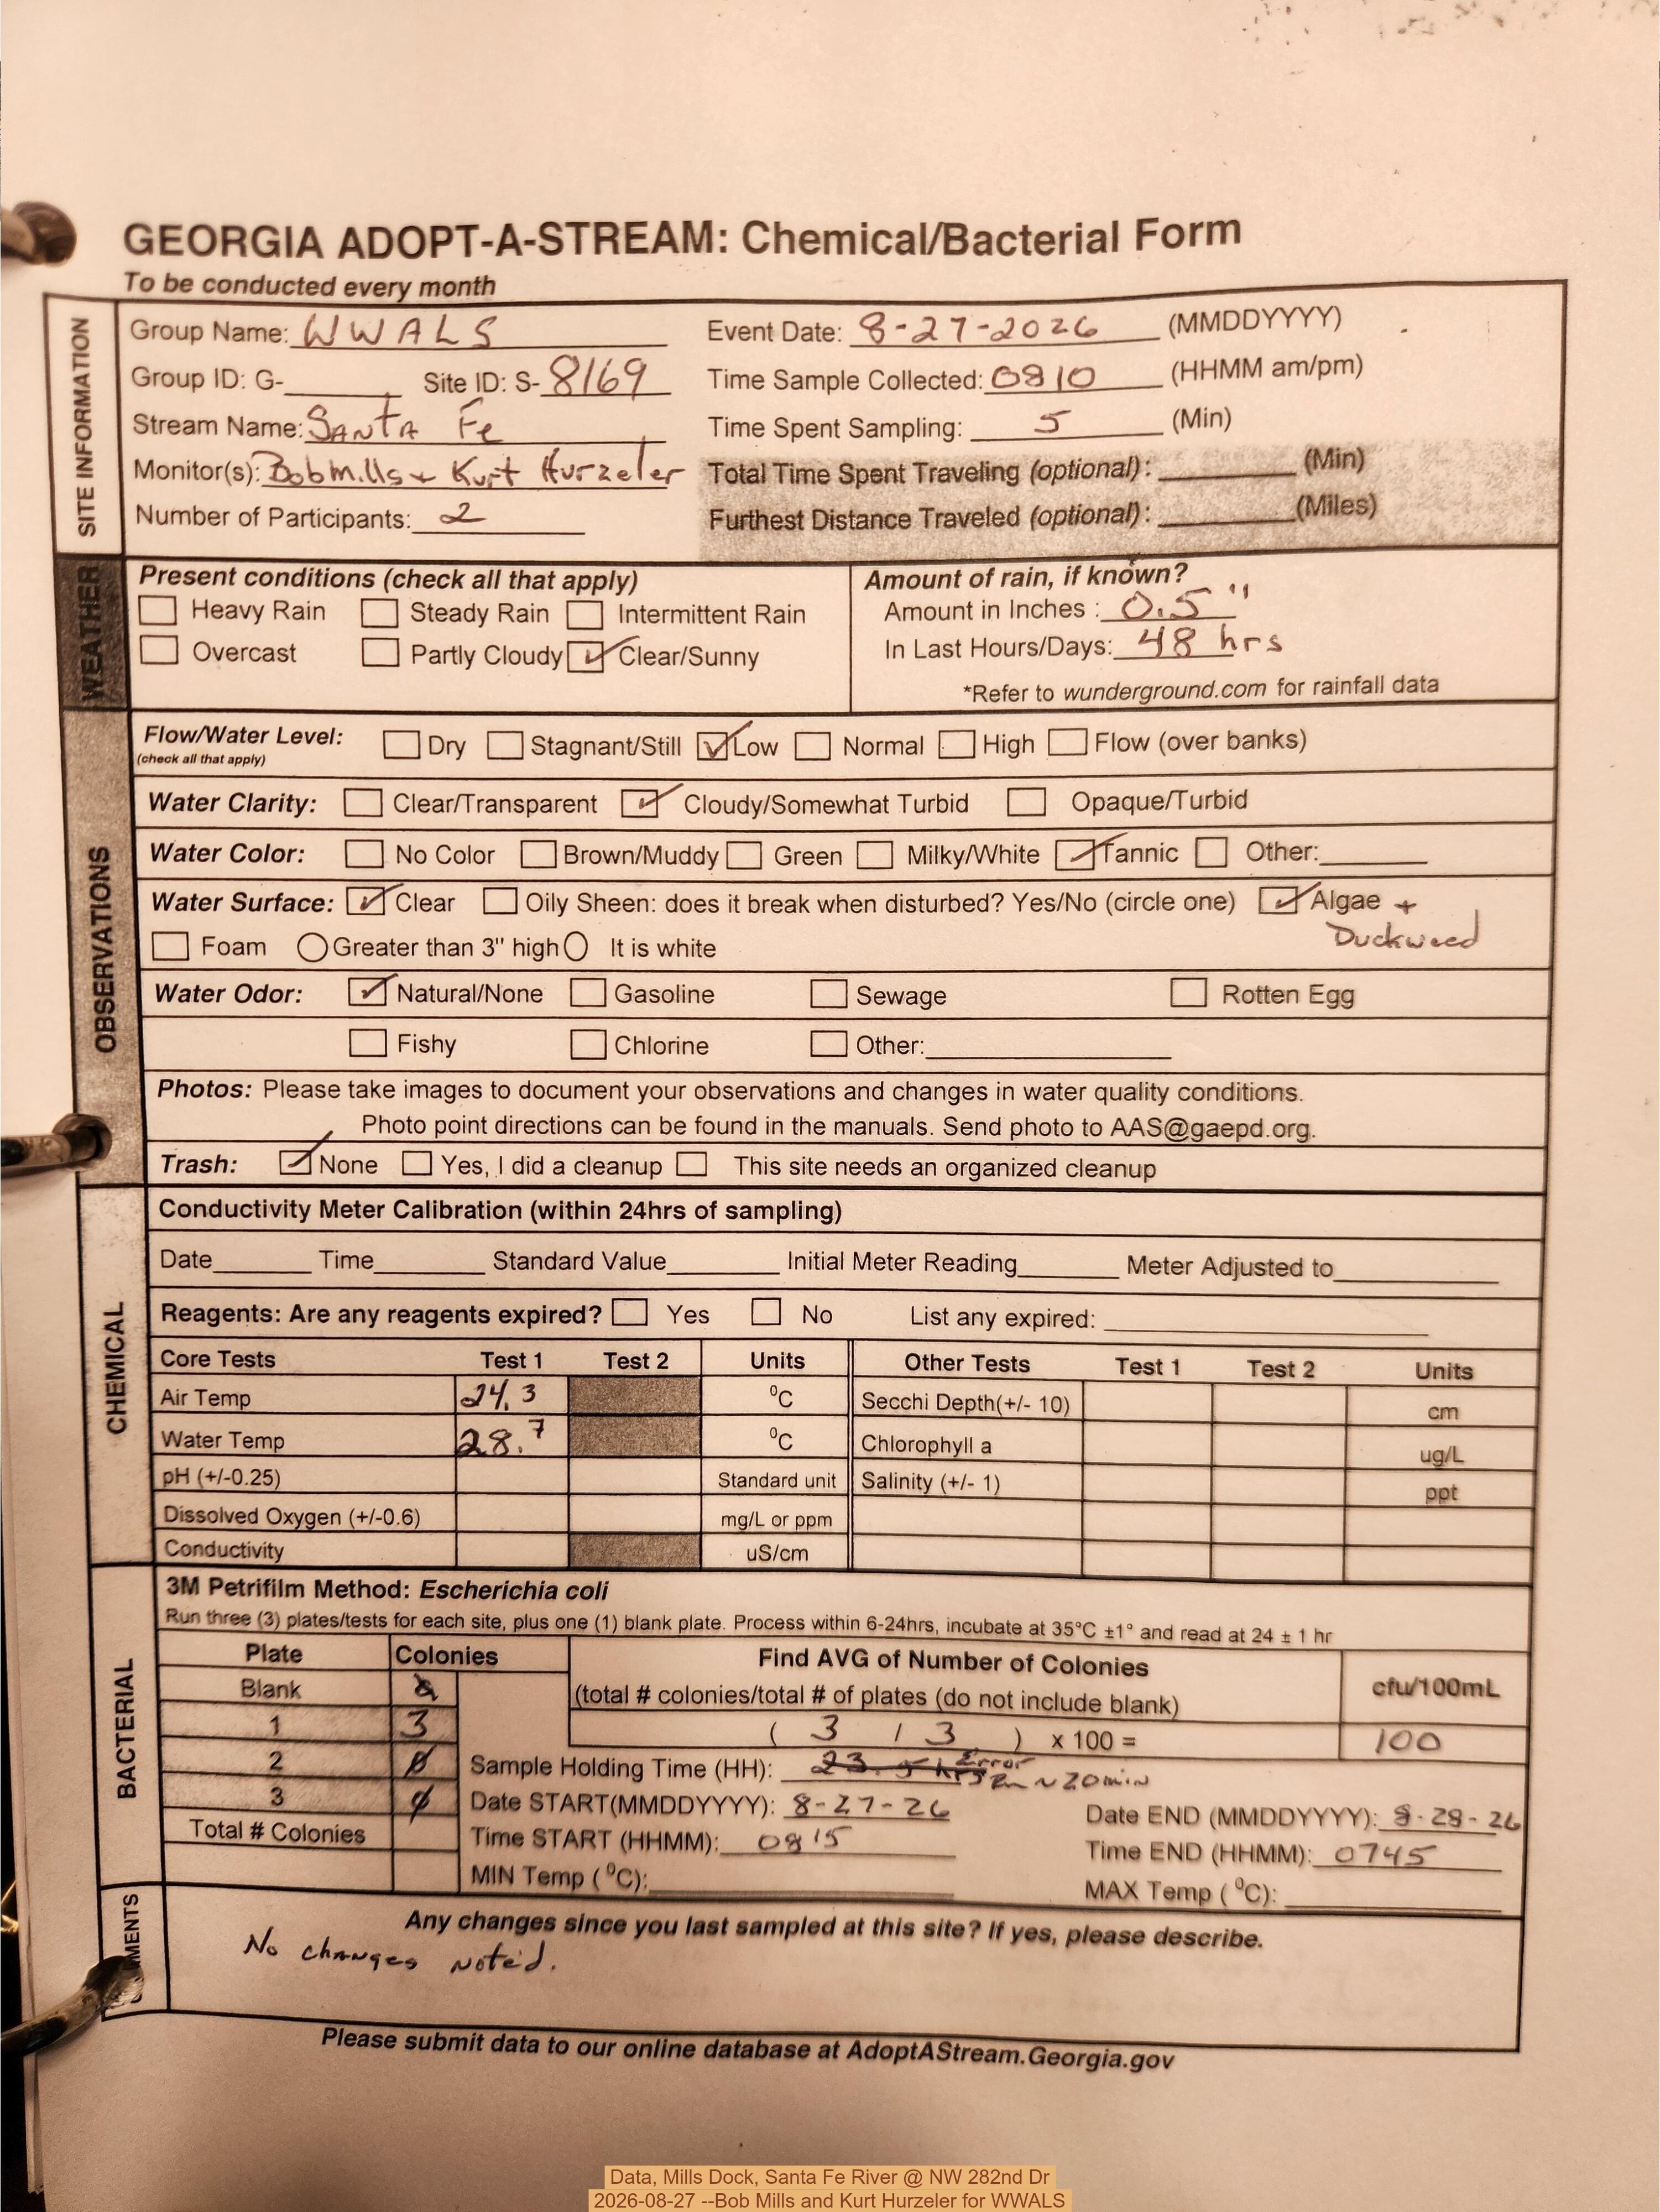 GEORGIA ADOPT-A-STREAM: Chemical/Bacterial Form
To be conducted every month
SITE INFORMATION
Group Name: WWALS Event Date: 8-27-2026 (MMDDYYYY)
Group ID: G-______ Site ID: S- 8169 Time Sample Collected: 0810 (HHMM am/pm)
Stream Name: SANTA Fe Time Spent Sampling: 5 (Min)
Monitor(s): Bob Mills + Kurt Hurzeler Total Time Spent Traveling (optional): ______ (Min)
Number of Participants: 2 Furthest Distance Traveled (optional): ______ (Miles)
WEATHER
Present conditions (check all that apply) Amount of rain, if known?
Heavy Rain Steady Rain Intermittent Rain Amount in Inches : 0.5"
Overcast Partly Cloudy ✓ Clear/Sunny In Last Hours/Days: 48 hrs
*Refer to wunderground.com for rainfall data
OBSERVATIONS
Flow/Water Level: Dry Stagnant/Still ✓ Low Normal High Flow (over banks)
(check all that apply)
Water Clarity: Clear/Transparent ✓ Cloudy/Somewhat Turbid Opaque/Turbid
Water Color: No Color Brown/Muddy Green Milky/White ✓ Tannic Other:______
Water Surface: ✓ Clear Oily Sheen: does it break when disturbed? Yes/No (circle one) ✓ Algae +
Duckweed
Foam Greater than 3" high It is white
Water Odor: ✓ Natural/None Gasoline Sewage Rotten Egg
Fishy Chlorine Other:______
Photos: Please take images to document your observations and changes in water quality conditions.
Photo point directions can be found in the manuals. Send photo to AAS@gaepd.org.
Trash: ✓ None Yes, I did a cleanup This site needs an organized cleanup
CHEMICAL
Conductivity Meter Calibration (within 24hrs of sampling)
Date______ Time______ Standard Value______ Initial Meter Reading______ Meter Adjusted to______
Reagents: Are any reagents expired? Yes No List any expired: ______
Core Tests Test 1 Test 2 Units Other Tests Test 1 Test 2 Units
Air Temp 24.3 °C Secchi Depth(+/- 10) cm
Water Temp 28.7 °C Chlorophyll a ug/L
pH (+/-0.25) Standard unit Salinity (+/- 1) ppt
Dissolved Oxygen (+/-0.6) mg/L or ppm
Conductivity uS/cm
BACTERIAL
3M Petrifilm Method: Escherichia coli
Run three (3) plates/tests for each site, plus one (1) blank plate. Process within 6-24hrs, incubate at 35°C ±1° and read at 24 ± 1 hr
Plate Colonies Find AVG of Number of Colonies cfu/100mL
Blank (total # colonies/total # of plates (do not include blank)
1 3 ( 3 / 3 ) x 100 = 100
2 0 Sample Holding Time (HH): 23.5 hrs Error ~ 20 min
3 0 Date START(MMDDYYYY): 8-27-26 Date END (MMDDYYYY): 8-28-26
Total # Colonies Time START (HHMM): 0815 Time END (HHMM): 0745
MIN Temp (°C):______ MAX Temp (°C):______
Any changes since you last sampled at this site? If yes, please describe.
No changes noted.
Please submit data to our online database at AdoptAStream.Georgia.gov
Data, Mills Dock, Santa Fe River @ NW 282nd Dr
2026-08-27 --Bob Mills and Kurt Hurzeler for WWALS